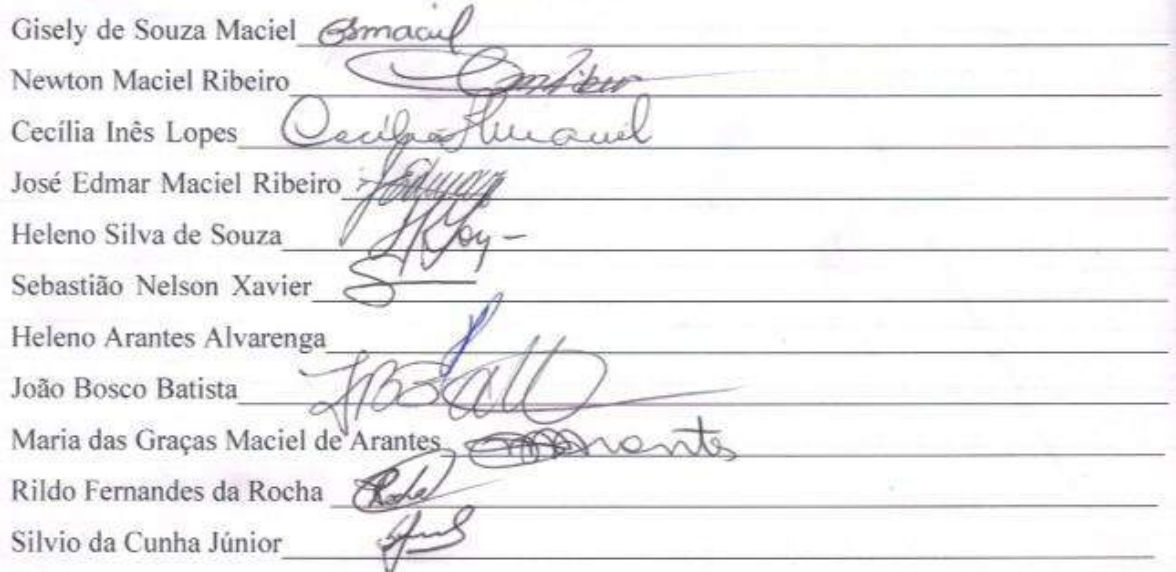 Gisely de Souza Maciel Gsmaciel
Newton Maciel Ribeiro
Cecília Inês Lopes Cecília
José Edmar Maciel Ribeiro
Heleno Silva de Souza
Sebastião Nelson Xavier
Heleno Arantes Alvarenga
João Bosco Batista
Maria das Graças Maciel de Arantes Arantes
Rildo Fernandes da Rocha Rocha
Silvio da Cunha Júnior